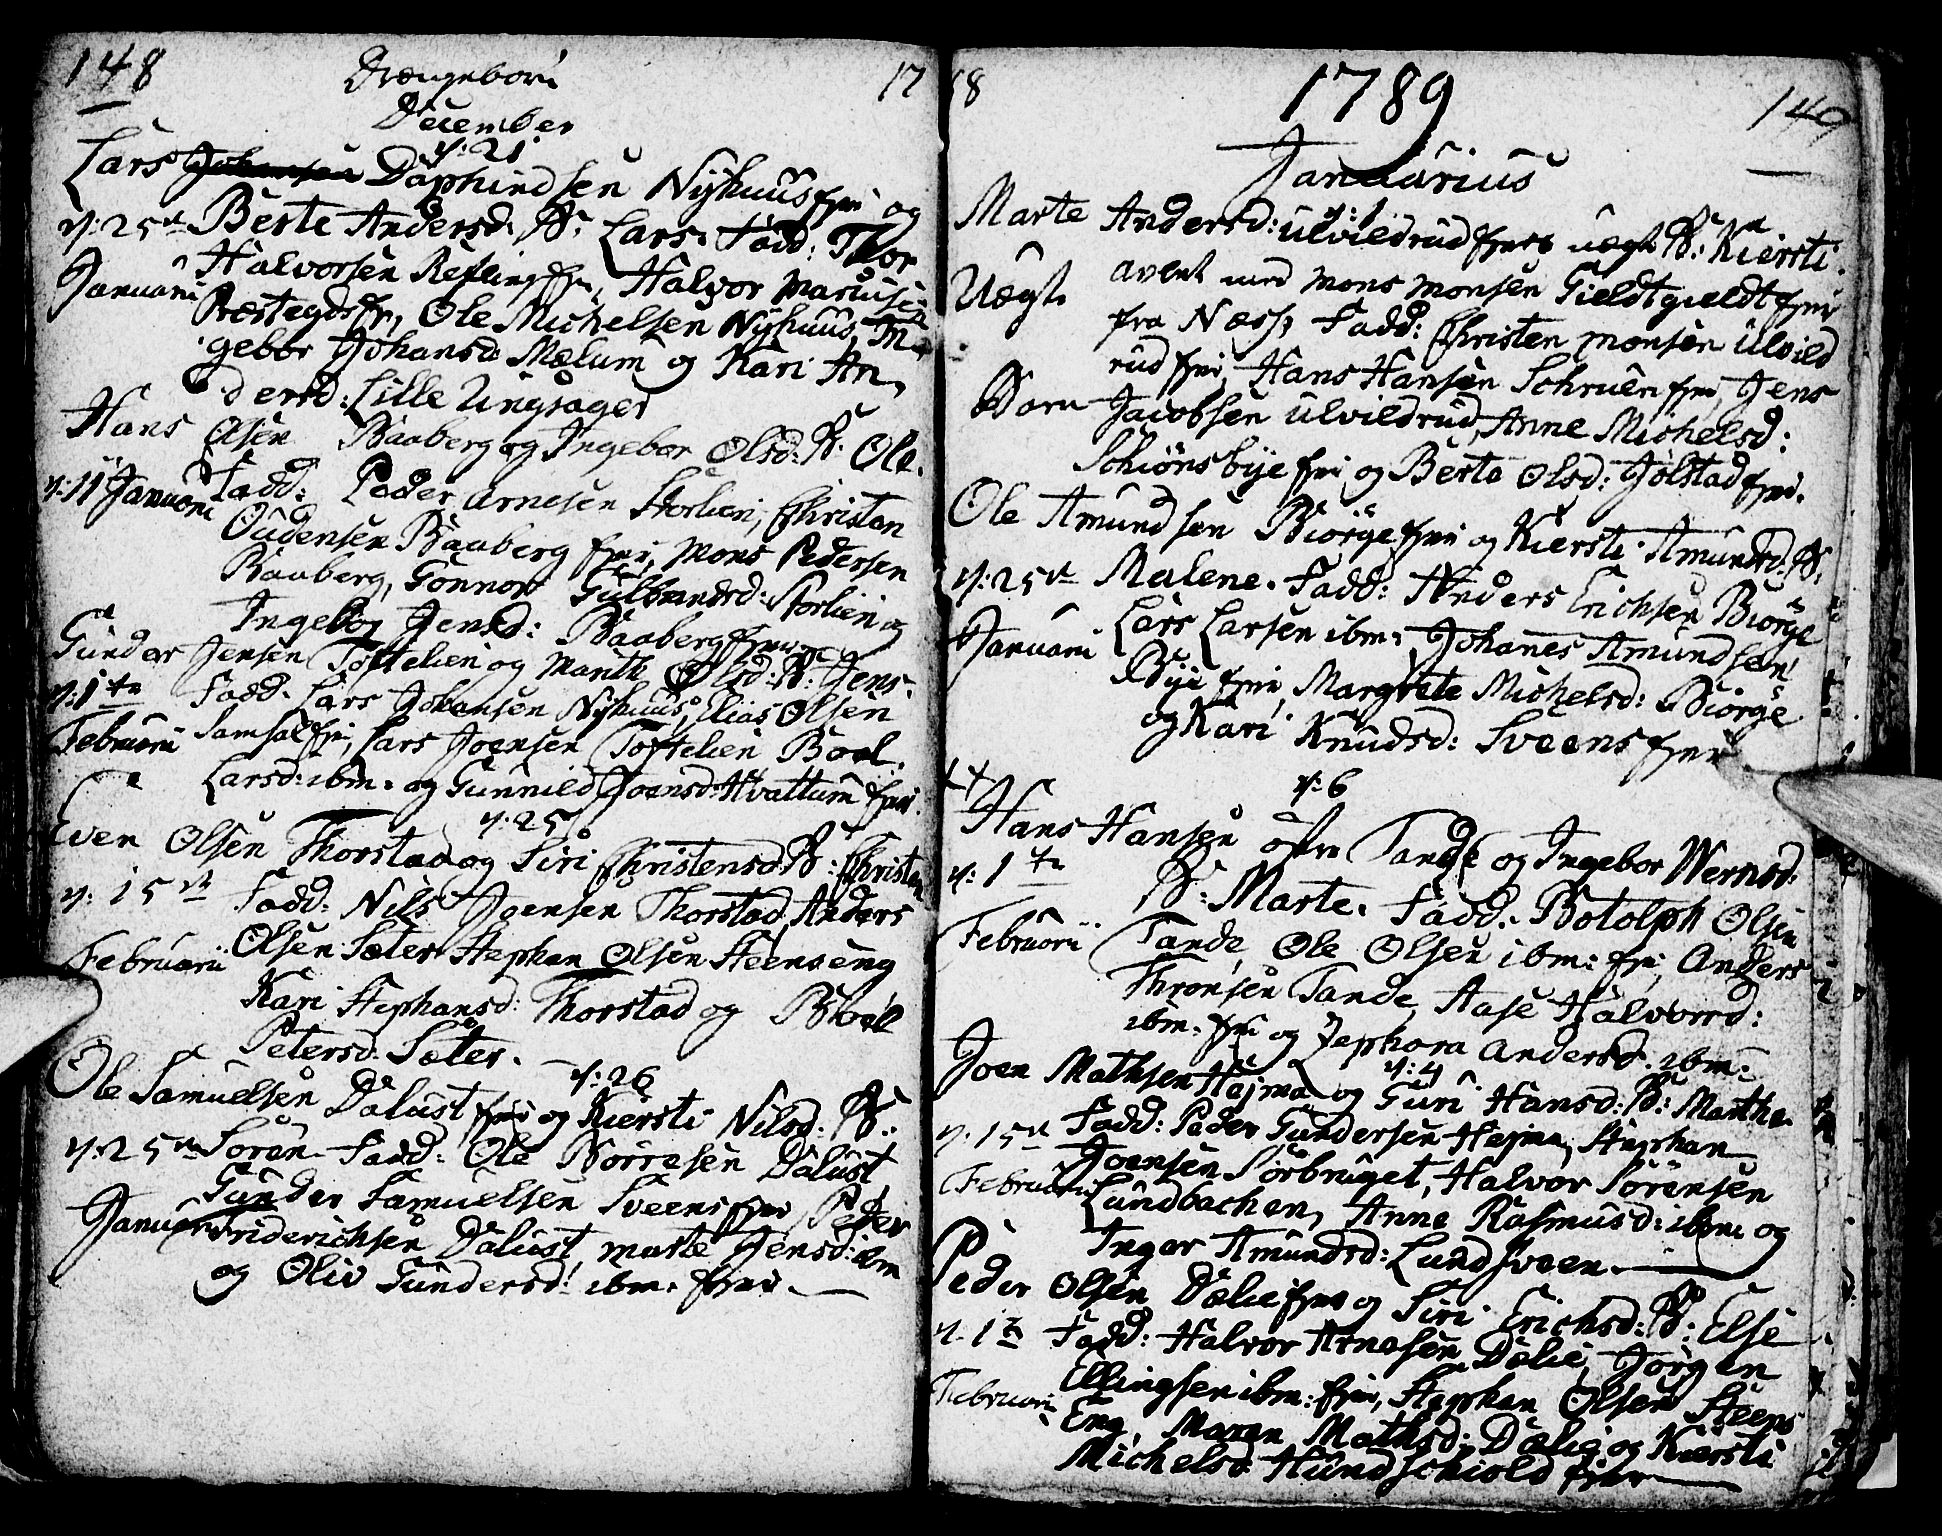 148 Drængebørn 17
December
d: 21
Lars Johansen Daphindsen Nyhuus fjer og
d: 25de Berte Andersd: B: Lars. Fadd: Thor
Januarii Halvorsen Refling fjer, Halvor Mariusen
Præstegds fjr, Ole Michelsen Nyhuus, In
gebor Johansd: Mælum og Kari An
dersd: Lille Ringsager
Hans Olsen Baaberg og Ingebor Olsd: B: Ole.
d: 11 Januarii Fadd: Peder Arnesen Storlien, Christen
Oudensen Baaberg fjer, Mons Pedersen
Baaberg, Gonnor Gulbrandsd: Storlien og
Ingebor Jensd: Baaberg fjer
Gunder Jensen Toftelien og Marth Olsd: B: Jens.
d: 1te Fadd. Lars Johansen Nyhuus, Elias Olsen
Februarii Samsal fjer, Lars Joensen Toftelien Boel
Larsd: ibm. og Gunnild Joensd: Hvattum fjer.
d: 25
Even Olsen Thorstad og Siri Christensd: B: Christen
d: 15de Fadd: Nils Joensen Thorstad, Anders
Februarii Olsen Sæter Stephan Olsen Steenseng
Kari Stephansd: Thorstad og Boel
Petersd: Sæter.
d: 26
Ole Samuelsen Dalust fjer og Kiersti Nilsd: B:
d: 25de Søren Fadd: Ole Børresen Dalust
Gunder Samuelsen Sveens fjer, Peder
Januarii Friderichsen Dalust Marte Jensd: ibm
og Oliv Gundersd: ibm. fjer.
88 1789 149
Januarius
d: 1
Marte Andersd: Ulvildrud fjer uægte B: Kiersti.
Uægte avlet med Mons Monsen Gieldtgieldt fjer
fra Næss, Fadd: Christen Monsen Ulvild
rud fjer, Hans Hansen Schruen fjer, Jens
Barn Jacobsen Ulvildrud, Anne Michelsd:
Schiønsbye fjer og Berte Olsd: Jølstad fjer.
Ole Amundsen Biørge fjer og Kiersti Amundsd: B:
d: 25de Malene. Fadd: Anders Erichsen Biørge
Januarii Lars Larsen ibm, Johanes Amundsen
Bye fjer, Margrete Michelsd: Biørge
og Kari Knudsd: Sveens fjer
d: 6
Hans Hansen øfre Tande og Ingebor Wernsd:
d: 1te B: Marte. Fadd. Botolph Olsen
Februarii Tande, Ole Olsen ibm: fjer, Anders
Thronsen Tande, Aase Halvorsd:
ibm. fjer og Zephora Andersd. ibm.
d: 4
Joen Mathsen Hejma og Guri Hansd: B: Marthe.
d: 15de Fadd: Peder Gundersen Hejma, Stephan
Joensen Sørbruget, Halvor Sørensen
Februarii Lundbachen, Anne Rasmusd: ibm og
Inger Amundsd: Lundsveen.
Peder Olsen Dælie fjer og Siri Erichsd: B: Else
d. 1te Fadd: Halvor Arnesen Dælie, Jørgen
Ellingsen ibm: fjer, Stephan Olsen Steens
Februarii Eng, Maren Mathsd: Dælie og Kiersti
Michelsd: Hundschiold fjer